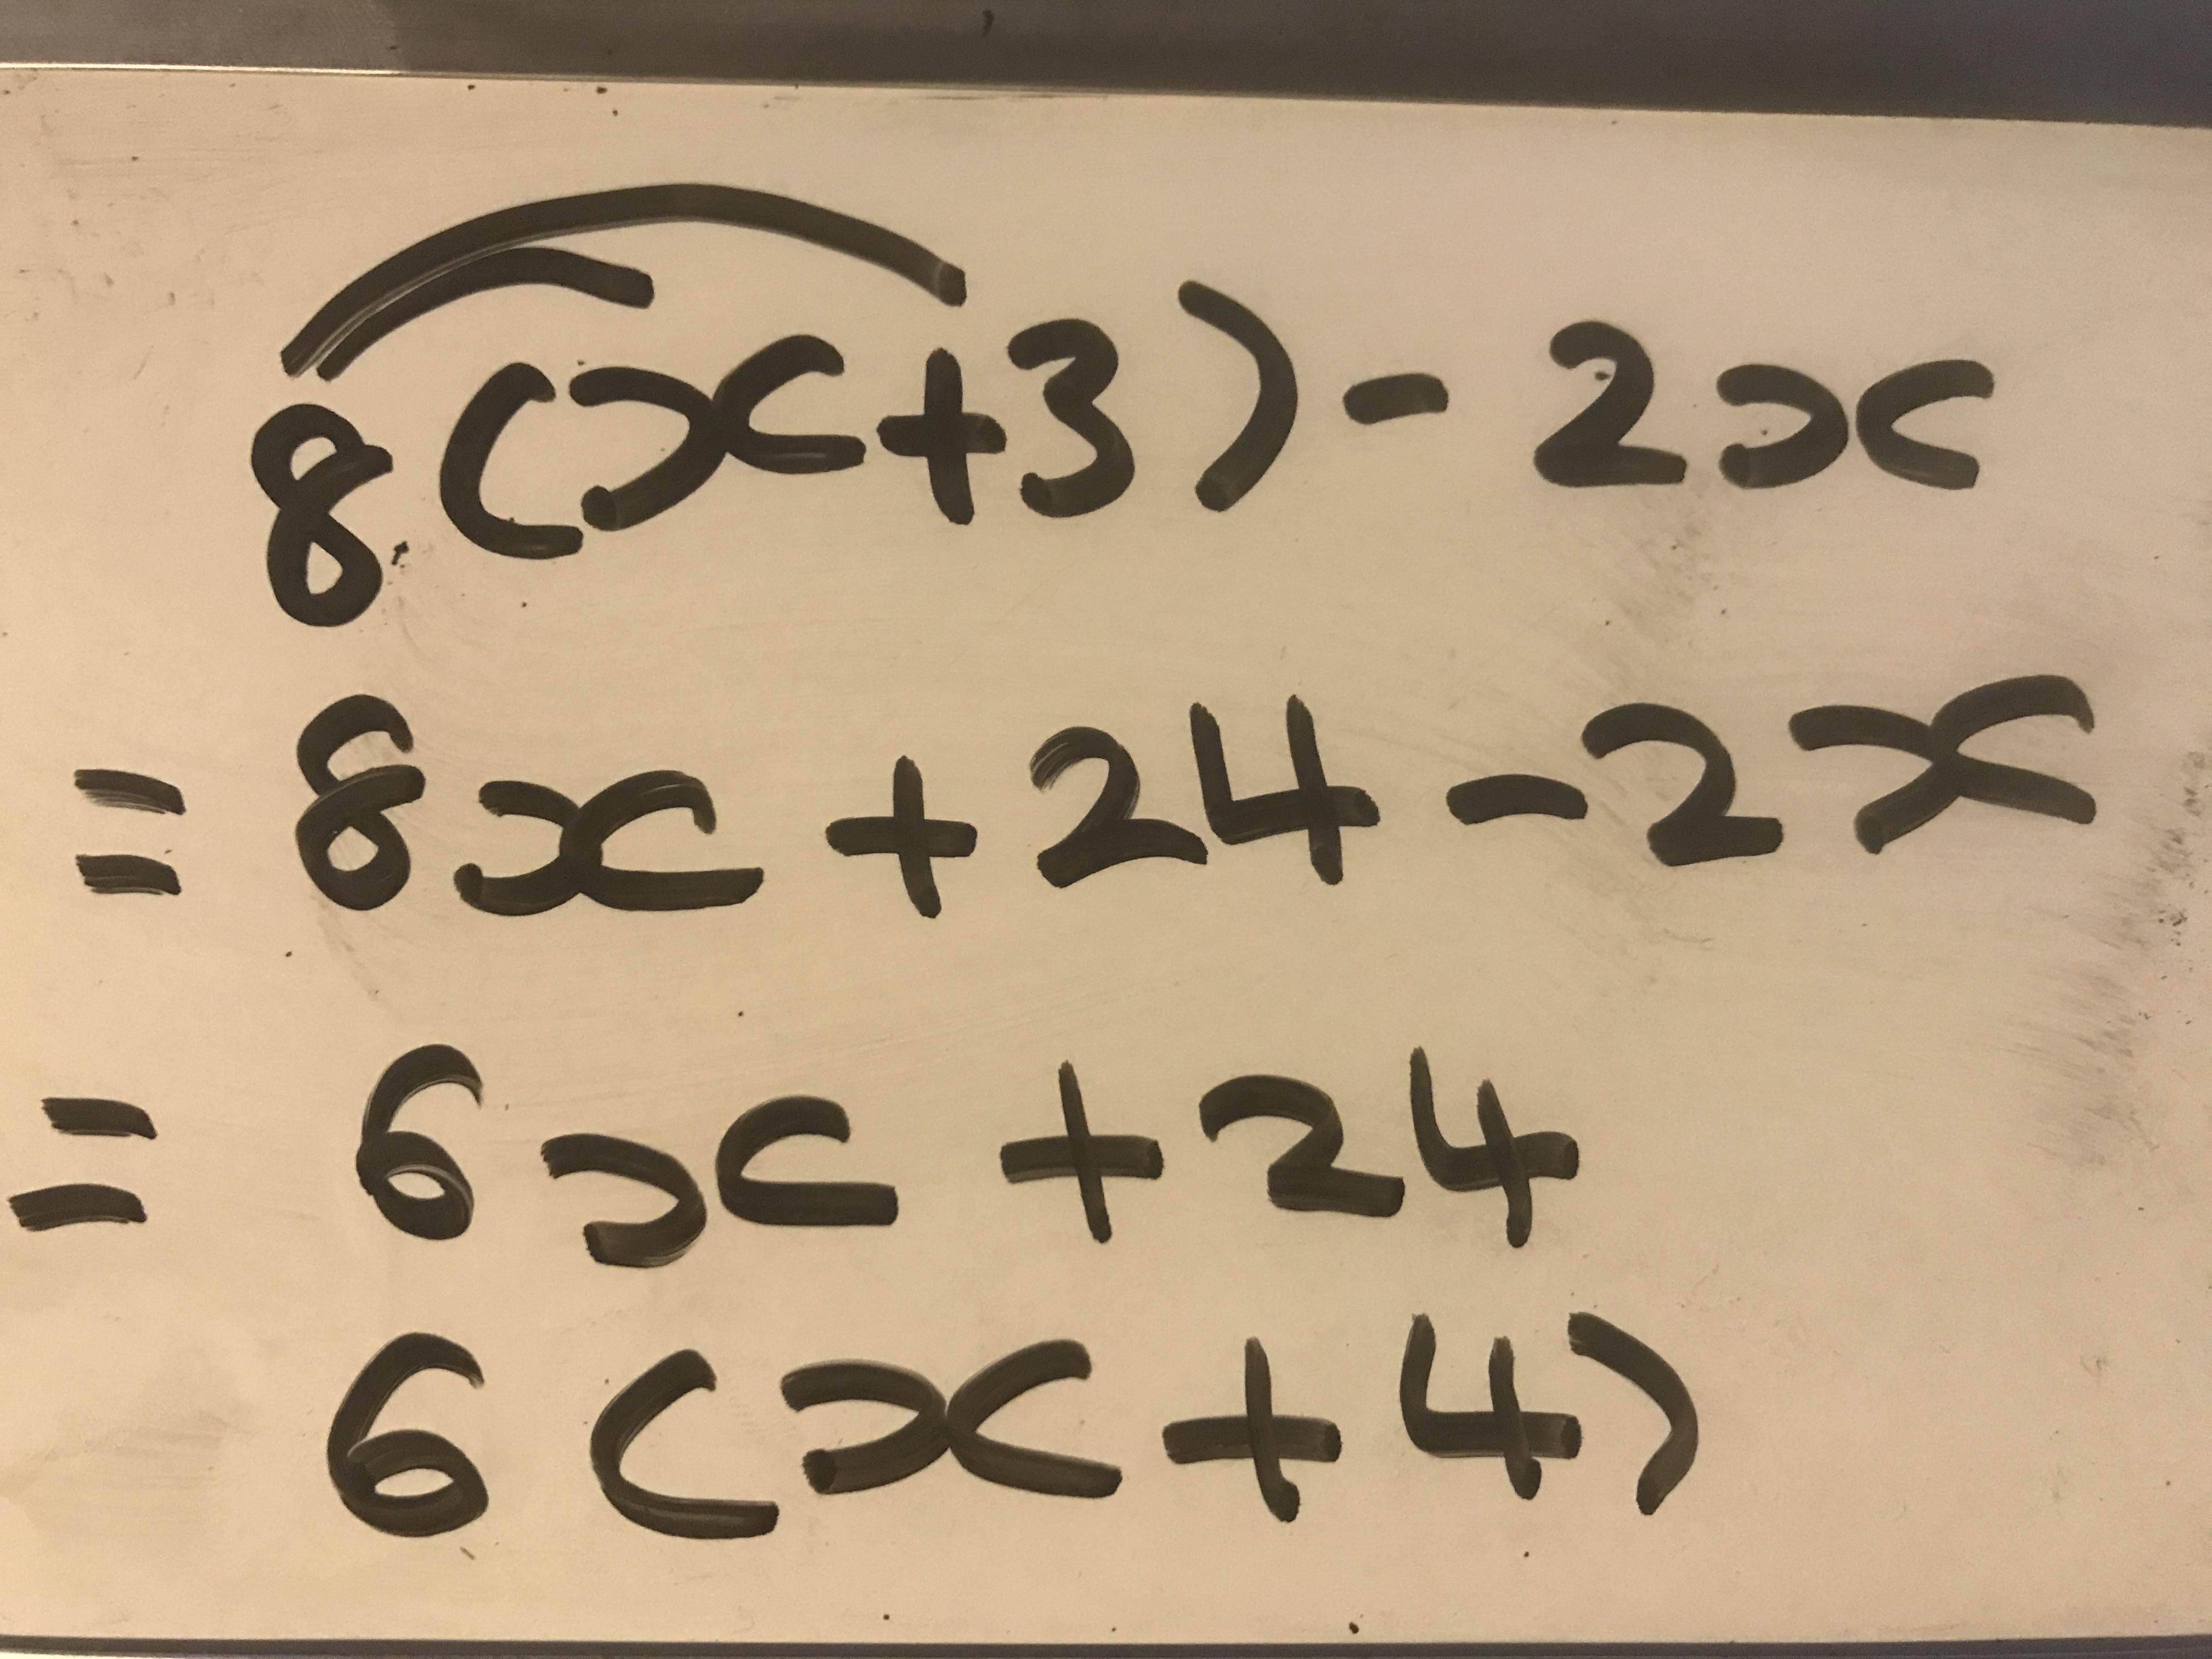 8(x+3)-2x
= 8x+24-2x
= 6x+24
6(x+4)